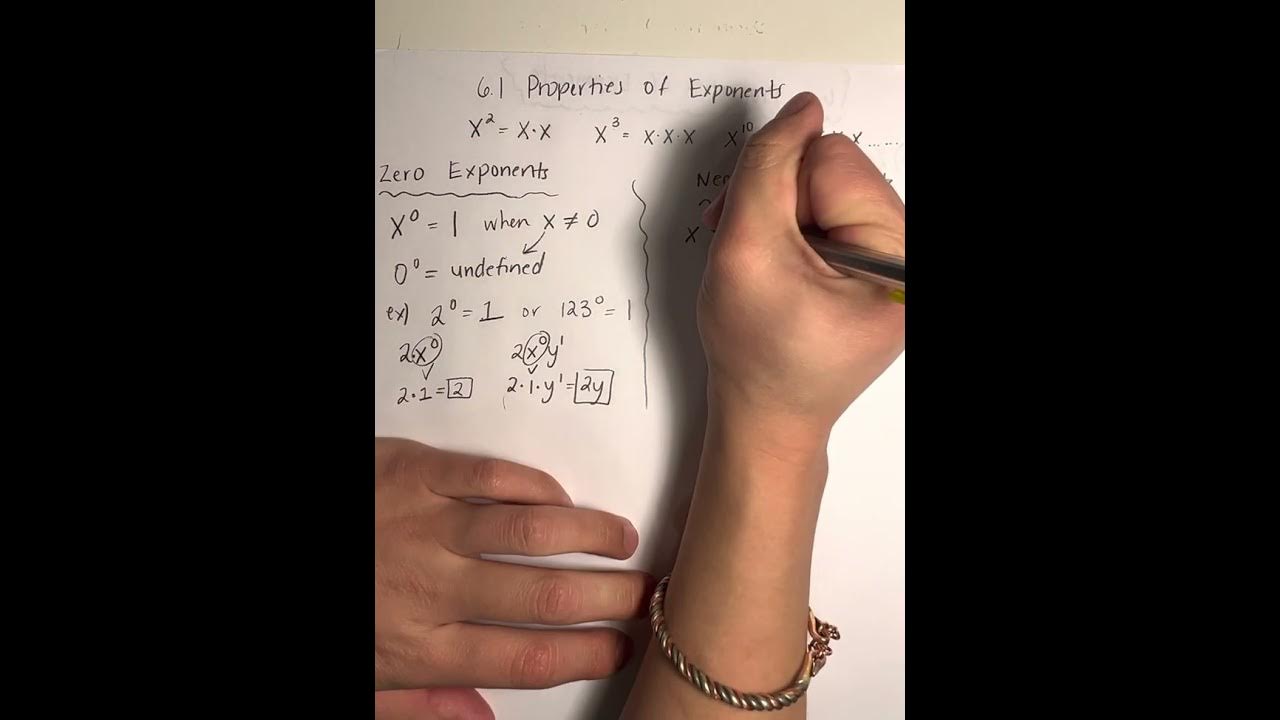 6.1 Properties of Exponents
x² = x·x x³ = x·x·x x¹⁰ x ......
Zero Exponents
x⁰ = 1 when x ≠ 0
0⁰ = undefined
ex) 2⁰ = 1 or 123⁰ = 1
2·x⁰ 2x⁰y¹
2·1 = 2 2·1·y¹ = 2y
x